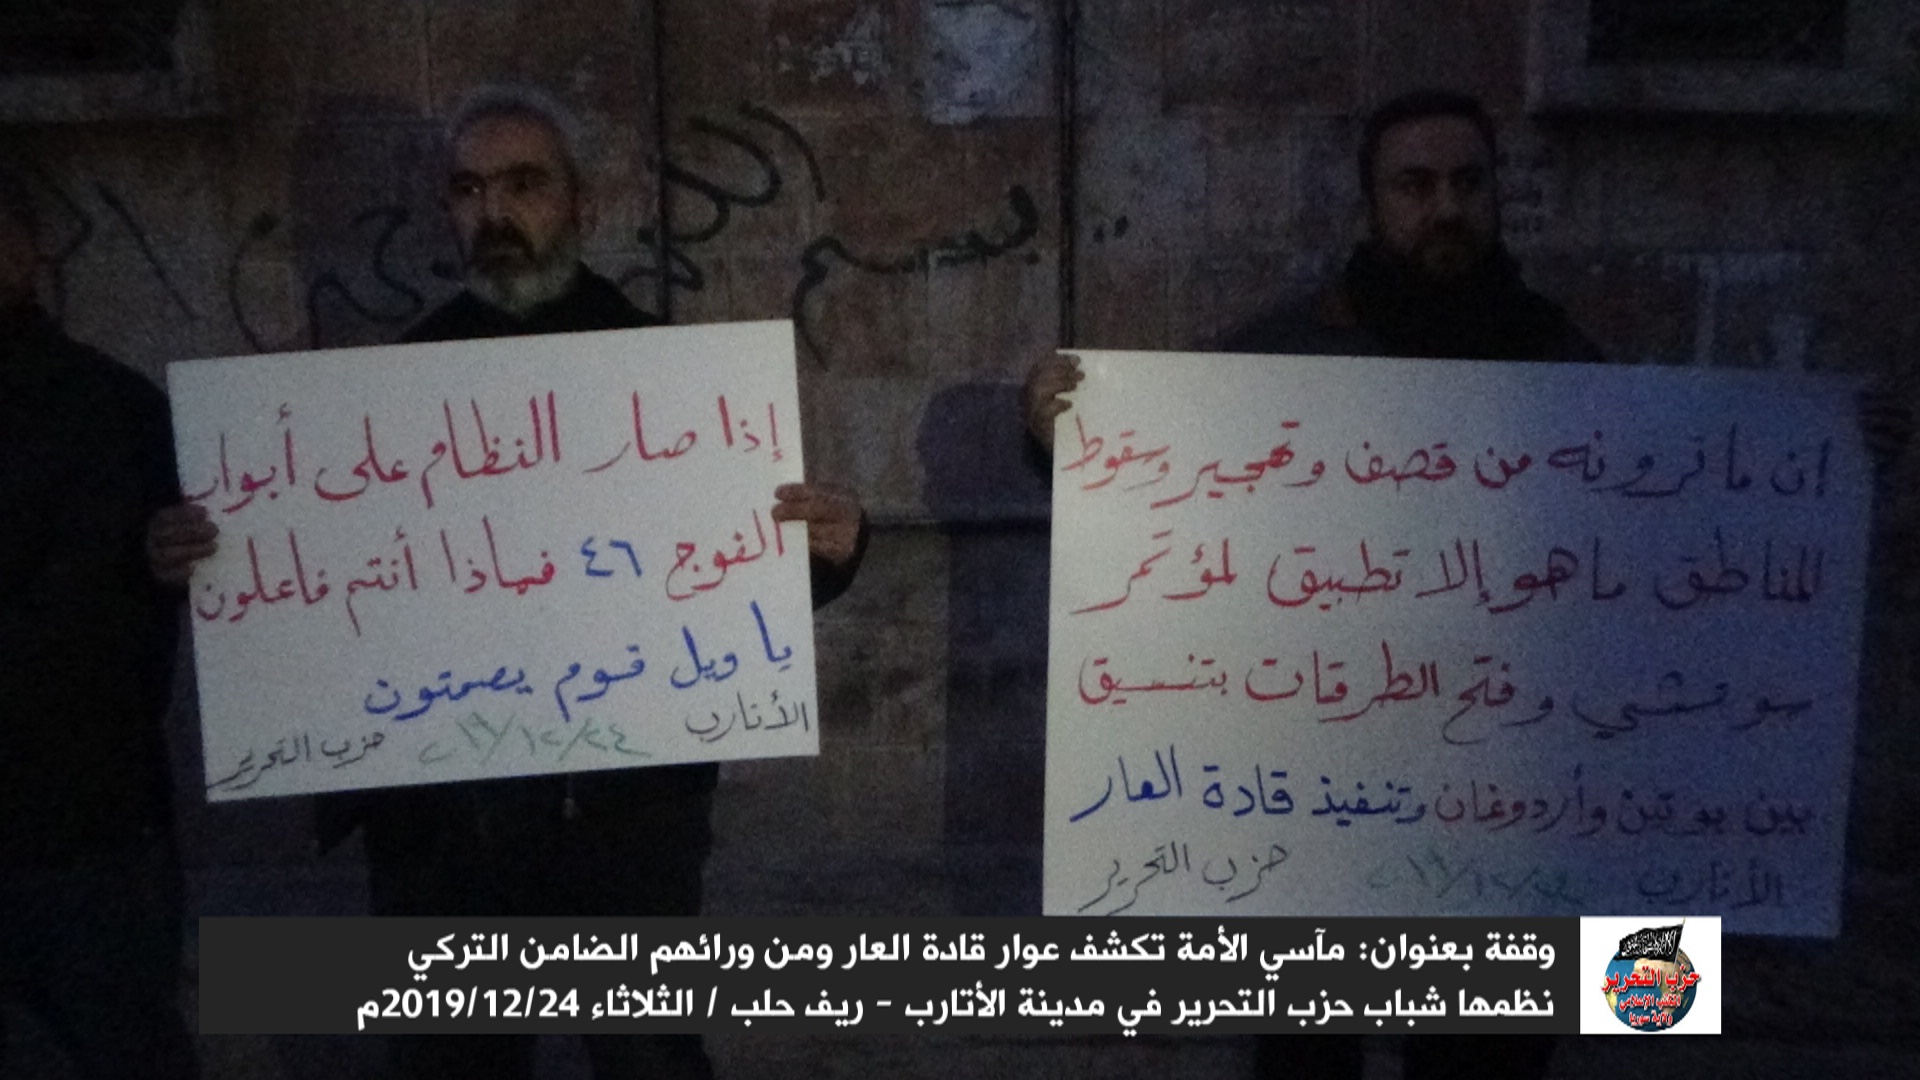 بسم الله الرحمن الر
ان ما ترونه من قصف وتهجير وسقوط
للمناطق ما هو إلا تطبيق لمؤتمر
سوتشي وفتح الطرقات بتنسيق
بين بوتين وأردوغان وتنفيذ قادة العار
الأتارب ٢٠١٩/١٢/٢٤ حزب التحرير
إذا صار النظام على أبواب
الفوج ٤٦ فماذا أنتم فاعلون
يا ويل قوم يصمتون
الأتارب ٢٠١٩/١٢/٢٤ حزب التحرير
وقفة بعنوان: مآسي الأمة تكشف عوار قادة العار ومن ورائهم الضامن التركي
نظمها شباب حزب التحرير في مدينة الأتارب - ريف حلب / الثلاثاء 2019/12/24م
حزب التحرير
المكتب الإعلامي
ولاية سوريا